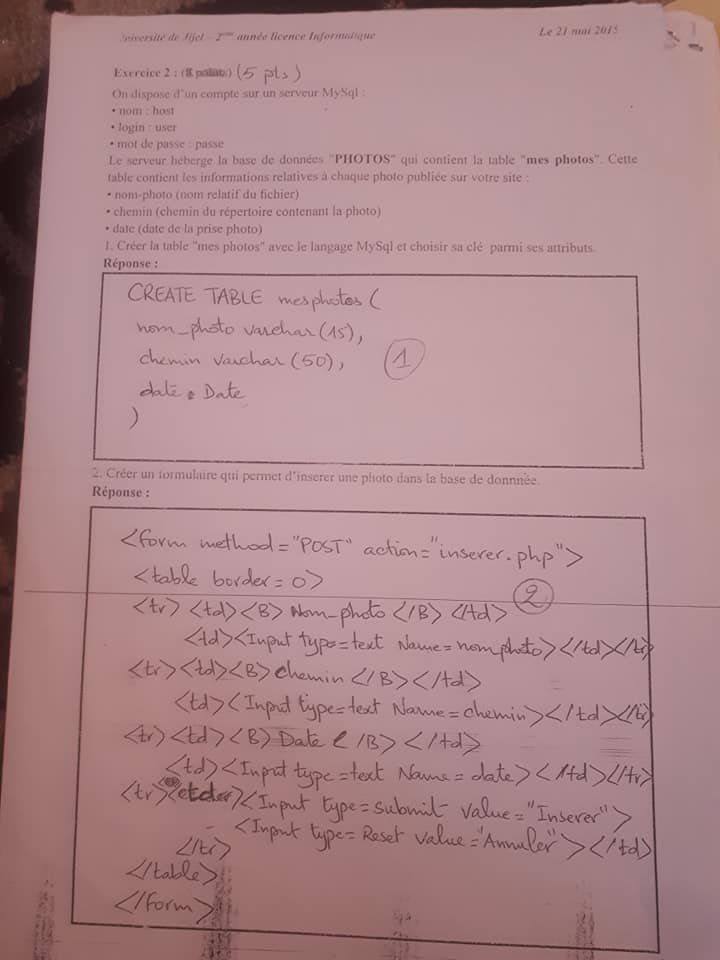 Université de Jijel – 2ème année licence Informatique
Le 21 mai 2015
Exercice 2 : (5 pts)
On dispose d'un compte sur un serveur MySql :
• nom : host
• login : user
• mot de passe : passe
Le serveur héberge la base de données "PHOTOS" qui contient la table "mes photos". Cette
table contient les informations relatives à chaque photo publiée sur votre site :
• nom-photo (nom relatif du fichier)
• chemin (chemin du répertoire contenant la photo)
• date (date de la prise photo)
1. Créer la table "mes photos" avec le langage MySql et choisir sa clé parmi ses attributs.
Réponse :
CREATE TABLE mesphotos (
nom_photo varchar(15),
chemin varchar(50),
1
date Date
)
2. Créer un formulaire qui permet d'inserer une photo dans la base de donnnée.
Réponse :
<form method="POST" action="inserer.php">
<table border=0>
2
<tr><td><B> Nom_photo </B></td>
<td><Input type=text Name=nomphoto></td></tr>
<tr><td><B> chemin </B></td>
<td><Input type=text Name=chemin></td></tr>
<tr><td><B> Date </B></td>
<td><Input type=text Name=date></td></tr>
<tr><Input type=submit value="Inserer">
<Input type=Reset value="Annuler"></td>
</tr>
</table>
</form>